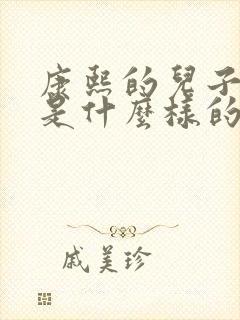 康熙的兒子
是什麼樣的
戚美珍